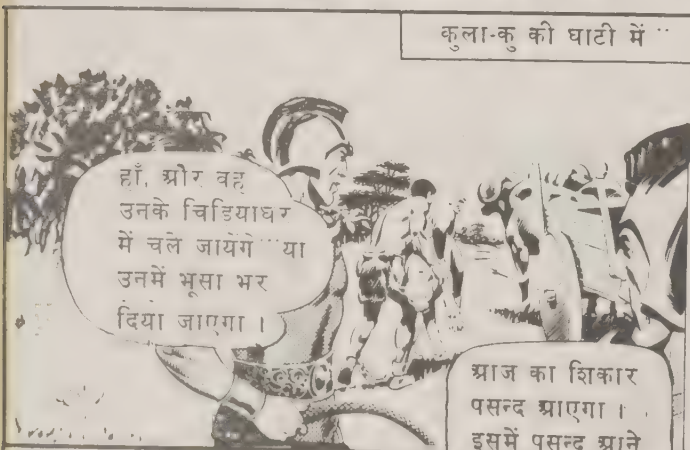 कुला-कु की घाटी में ¨
हाँ, और वह
उनके चिडियाघर
में चले जायेंगे ¨ या
उनमें भूसा भर
दिया जाएगा ।
आज का शिकार
पसन्द आएगा ।
इसमें पसन्द आने